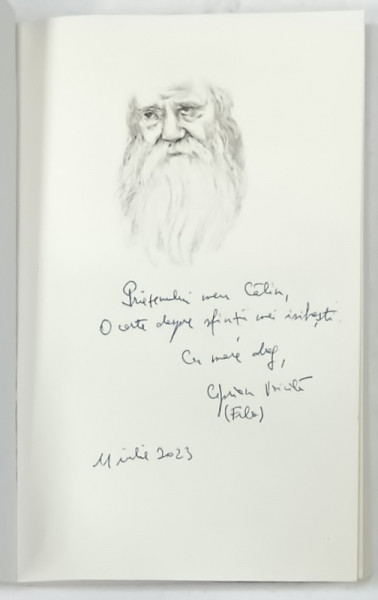 Prietenului meu Călin,
O carte despre sfinții mei iubiți.
Cu mare drag,
Ciprian Voicilă
(Filo)
11 iulie 2023